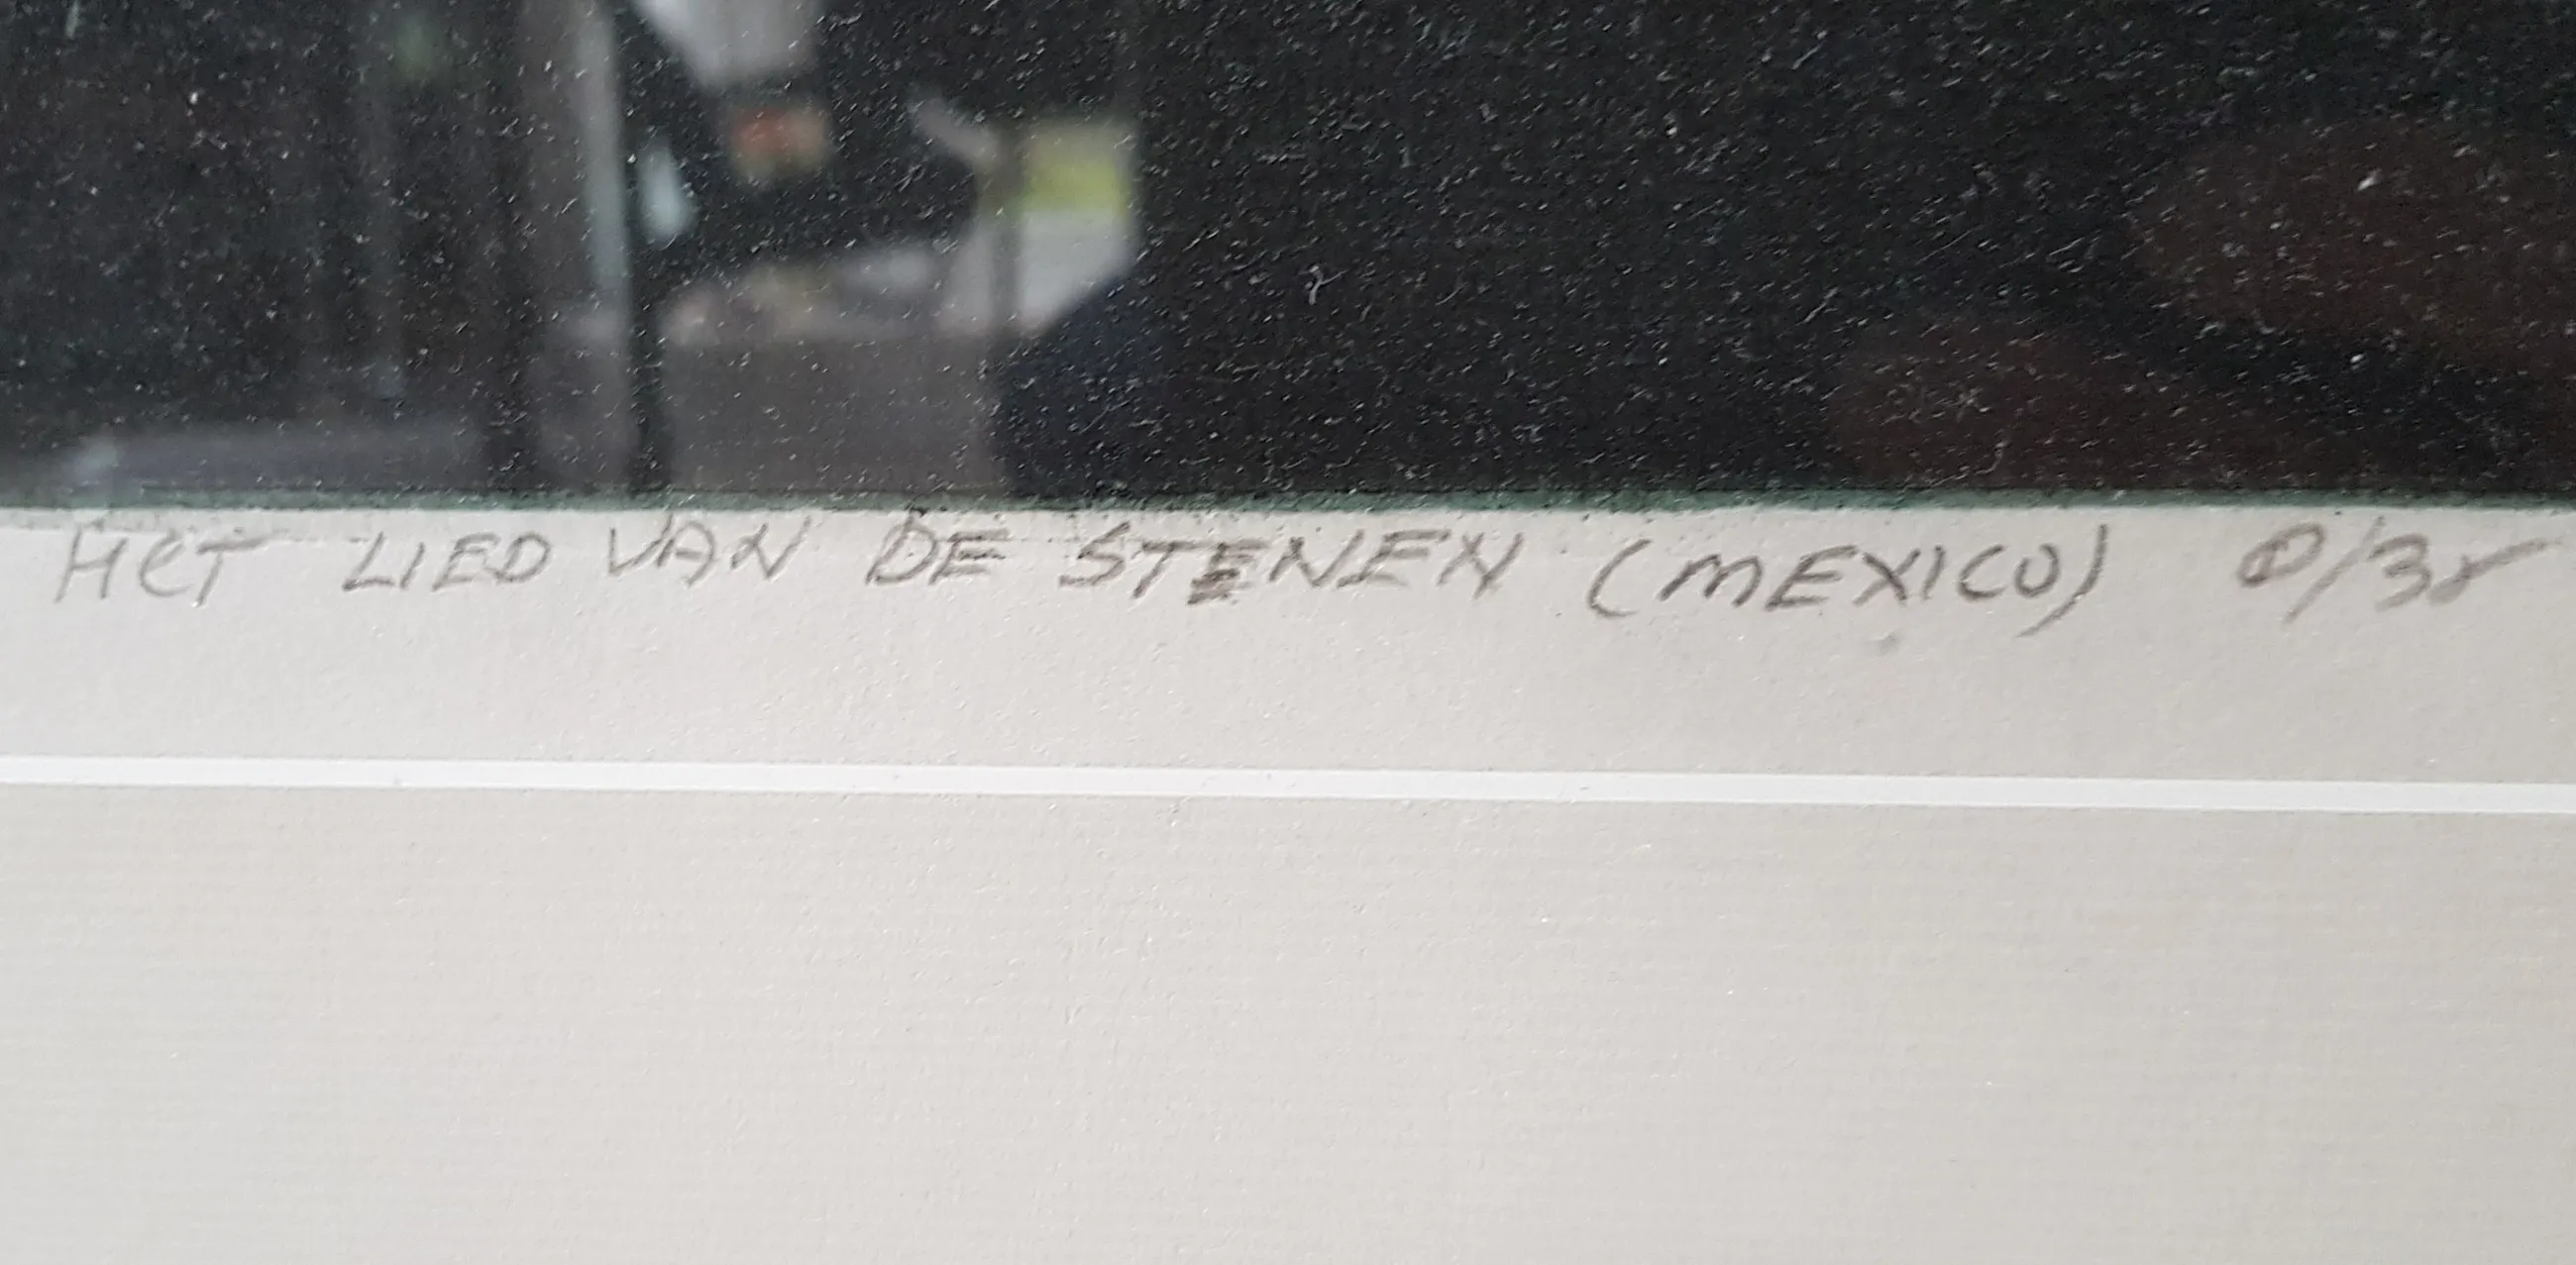 HET LIED VAN DE STENEN (MEXICO)